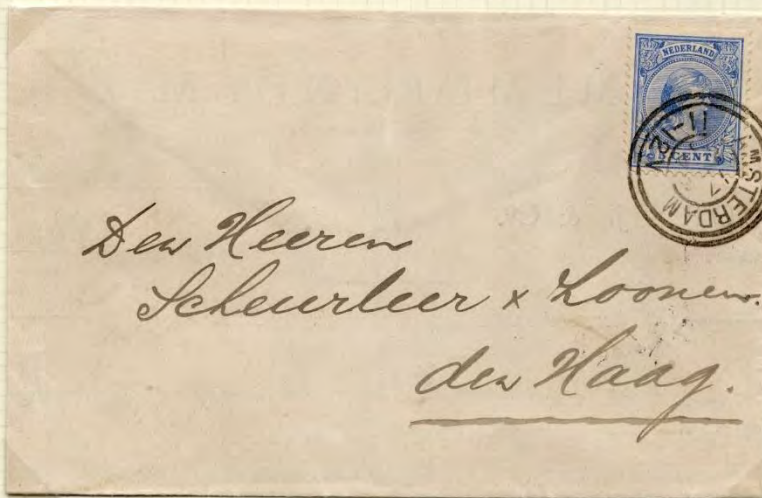 NEDERLAND
5 CENT
AMSTERDAM
11-12V
Den Heeren
Scheurleer x Zoonen.
den Haag.